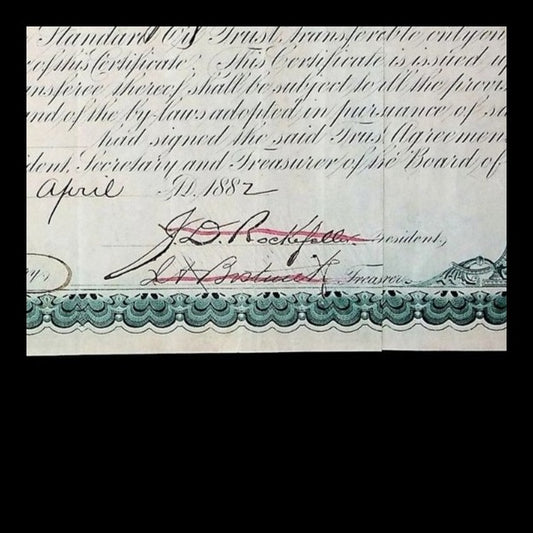 Standard Oil Trust, transferable only on
of this Certificate. This Certificate is issued up
nsferee thereof shall be subject to all the provis
and of the by-laws adopted in pursuance of sa
had signed the said Trust Agreemen
ident, Secretary and Treasurer of the Board of
April A.D. 1882
J. D. Rockefeller President,
Treasurer